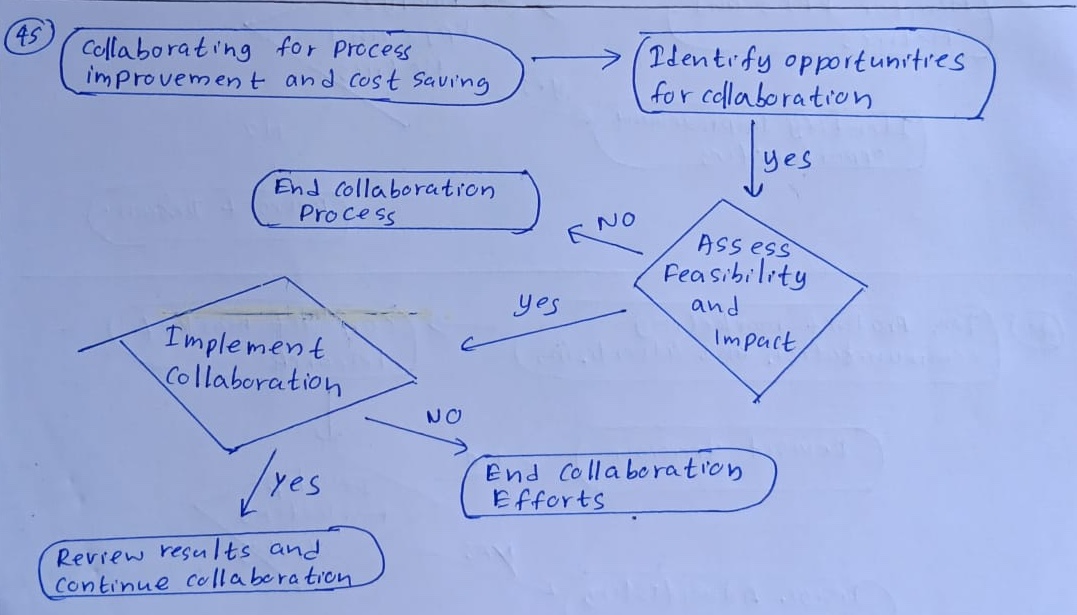 45
Collaborating for process
improvement and cost saving
Identify opportunities
for collaboration
yes
End collaboration
Process
NO
Assess
Feasibility
and
Impact
yes
Implement
Collaboration
NO
End Collaboration
Efforts
Yes
Review results and
continue collaboration